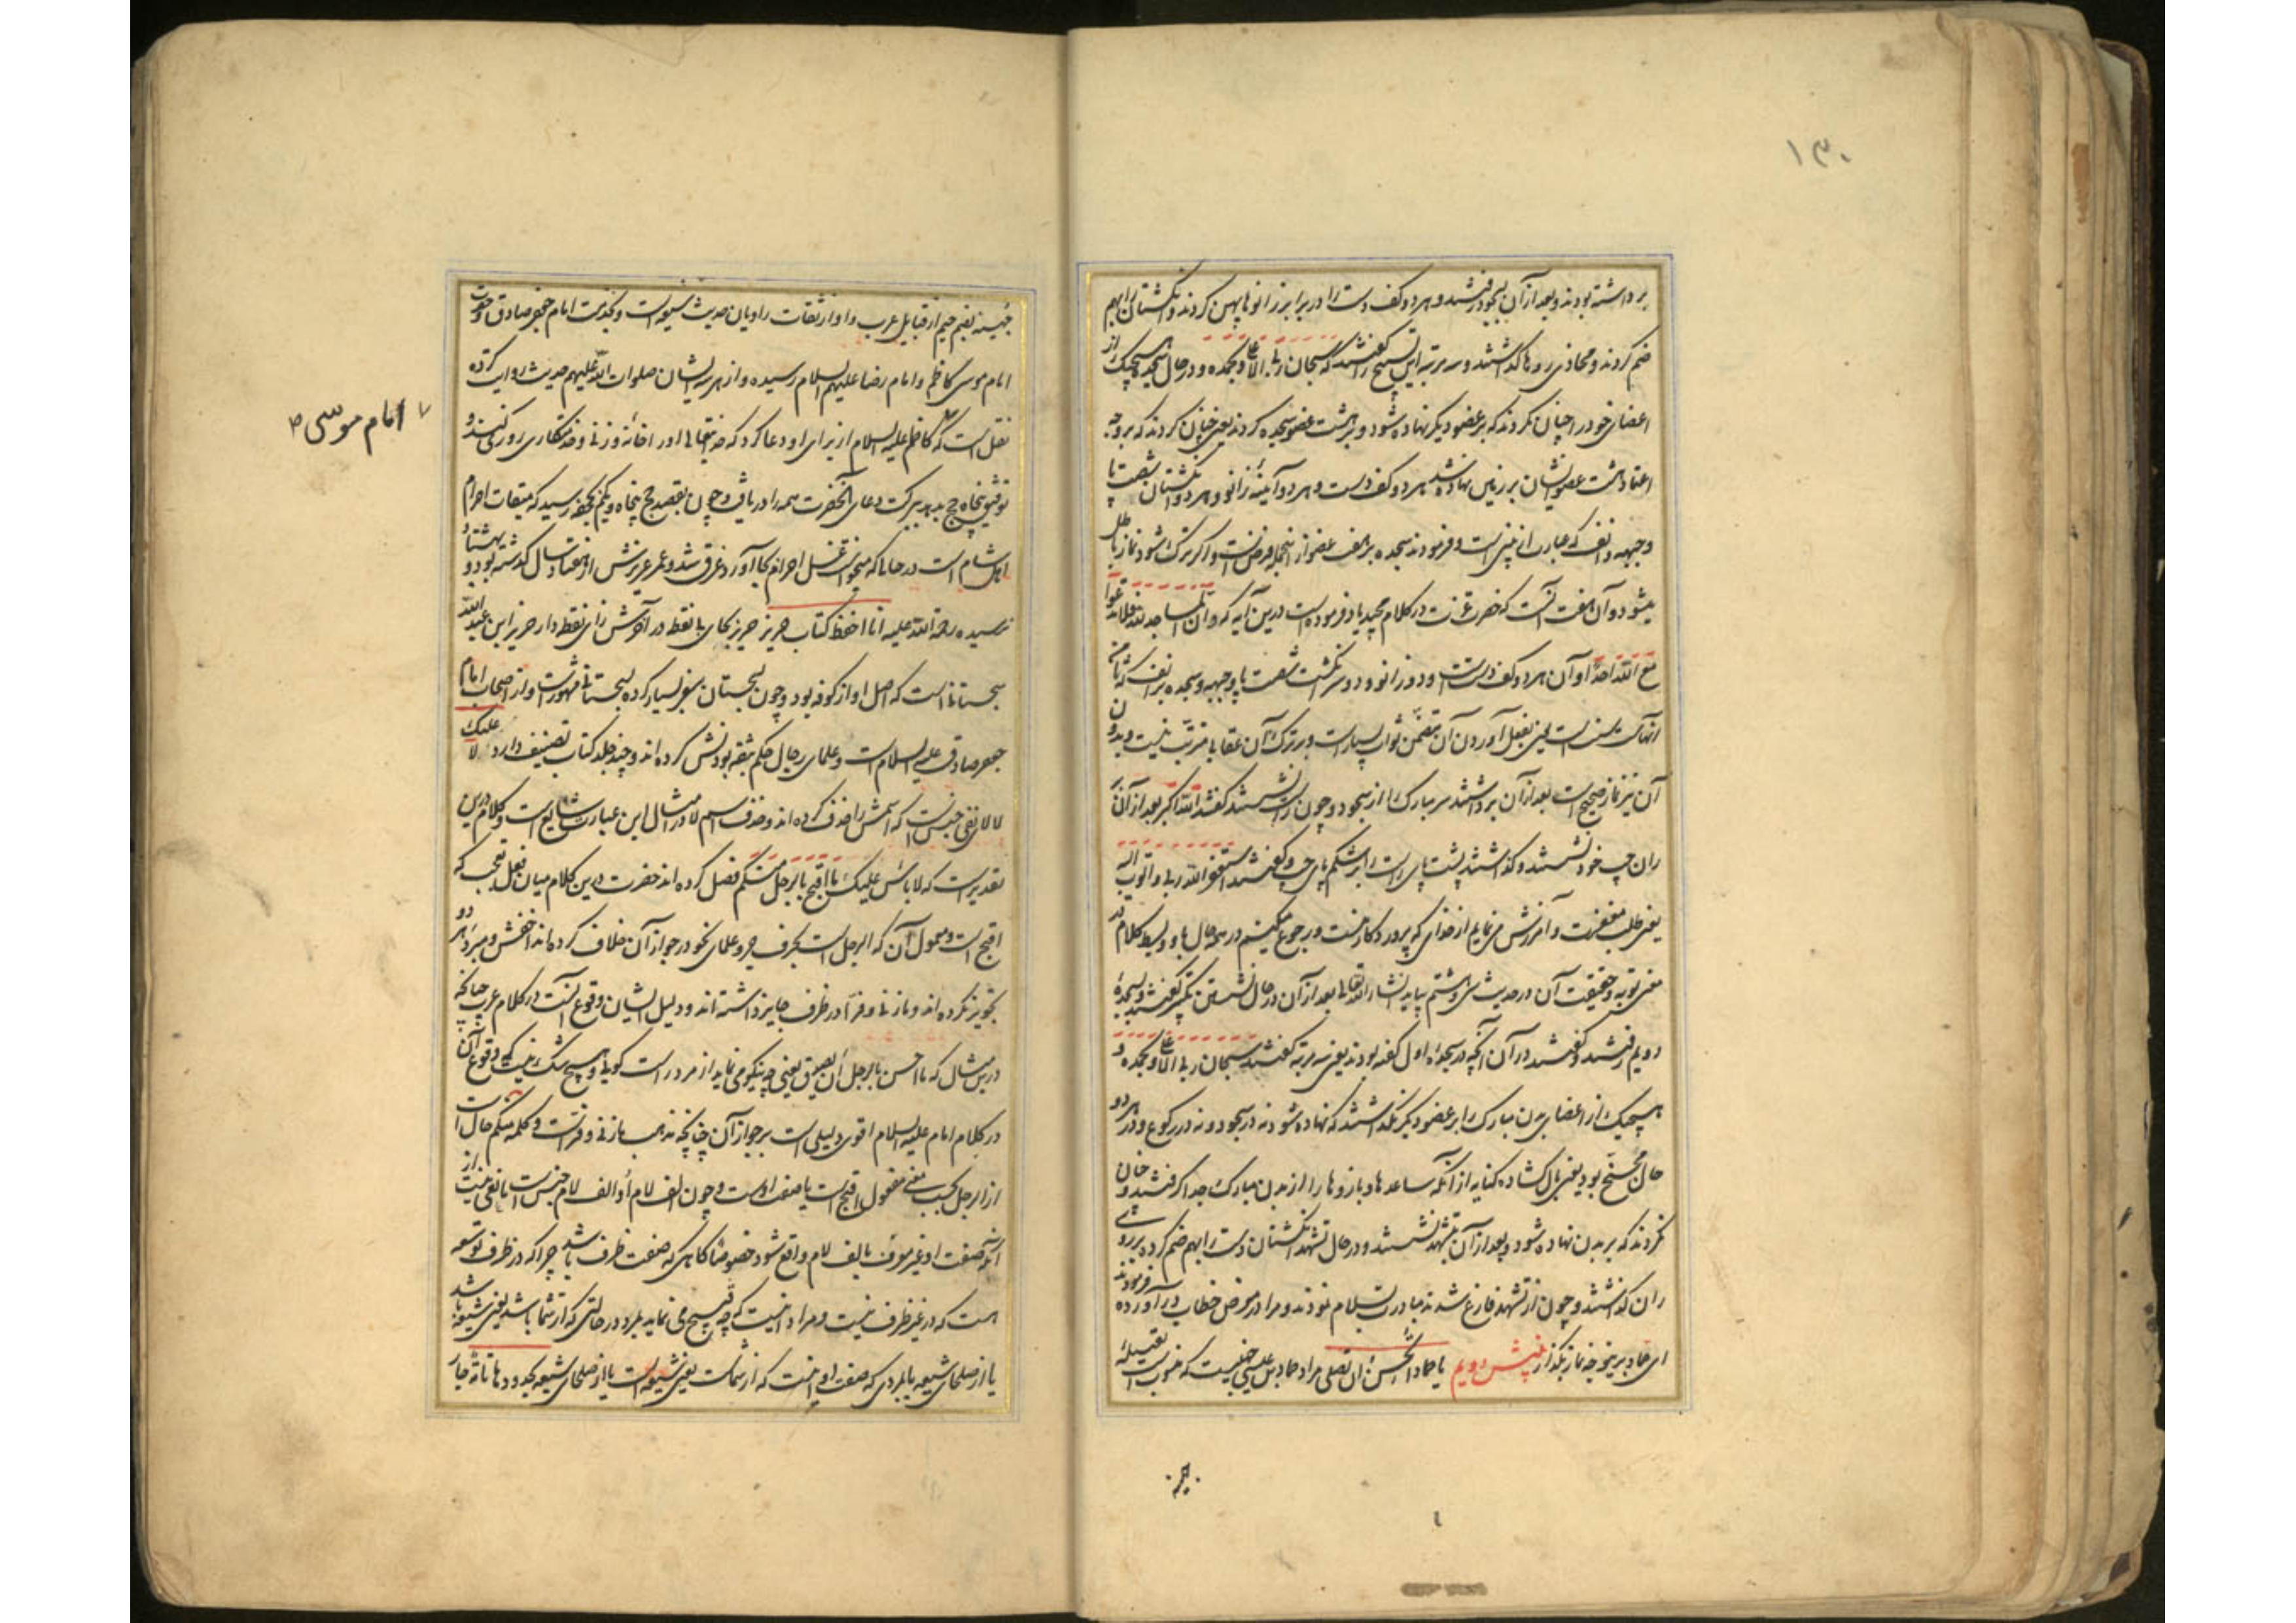 ۱۳۰
برداشته بودند و بعد از آن بسجود رفتند و هر دو کف دست را در برابر زانوها پهن کردند و انگشتان را بهم
ضم کردند و محاذی روها گذاشتند و سه مرتبه این تسبیح را گفتند که سبحان ربی الاعلی و بحمده و در حال سجده هیچیک از
اعضای خود را چنان نکردند که بر عضو دیگر نهاده شود و بر هشت عضو سجده کردند یعنی چنان کردند که بر وجه
اعتماد هشت عضو ایشان بر زمین نهاده شد هر دو کف دست و هر دو آینهٔ زانو و هر دو انگشتان شصت پا
و جبهه و انف که عبارت از بینی است و فرمودند سجده بر هفت عضو از اینجمله فرض است و اگر ترک شود نماز باطل
میشود و آن هفت آنست که حضرت عزت در کلام مجید یاد فرموده است درین آیه که و ان المساجد لله فلا تدعوا
مع الله احدا و آن هر دو کف دست است و دو زانو و دو سر انگشت شصت پا و جبهه و سجده بر انف که ثامن
آنهاست سنت است یعنی بفعل آوردن آن متضمن ثواب بسیار است و بر ترک آن عقابی مترتب نیست و بدون
آن نیز نماز صحیح است بعد از آن برداشتند سر مبارک را از سجود و چون راست نشستند گفتند الله اکبر بعد از آن بر
ران چپ خود نشستند و گذاشتند پشت پای راست را بر شکم پای چپ و گفتند استغفر الله ربی و اتوب الیه
یعنی طلب مغفرت و آمرزش می نمایم از خدائی که پروردگار منست و رجوع میکنیم در همه حال باو و بسط کلام در
معنی توبه و حقیقت آن در حدیث سی و هشتم بیاید انشاء الله تعالی بعد از آن در حال نشستن تکبیر گفتند و بسجدهٔ
دویم رفتند و گفتند در آن آنچه در سجدهٔ اول گفته بودند یعنی سه مرتبه گفتند سبحان ربی الاعلی و بحمده و
هیچیک از اعضای بدن مبارک را بر عضو دیگر نگذاشتند که نهاده شود نه در سجود و نه در رکوع و در هر دو
حال مجنح بود یعنی بال گشاده کنایه از آنکه ساعدها و بازوها را از بدن مبارک جدا گرفتند و چنان
نکردند که بر بدن نهاده شود و بعد از آن بتشهد نشستند و در حال تشهد انگشتان دست را بهم ضم کرده بر روی
ران گذاشتند و چون از تشهد فارغ شدند مبادرت بسلام نمودند و مرا در معرض خطاب در آورده فرمودند
ای حماد برینوجه نماز بگذار بینش دویم یا حماد اتحسن ان تصلی مراد حماد بن عیسی جهنیست که منسوب است بقبیلهٔ
جهینه
جهینه بضم جیم از قبایل عرب و او از ثقات راویان حدیث شیعه است و بخدمت امام جعفر صادق و حضرت
امام موسی کاظم و امام رضا علیهم السلام رسیده و از هر سه ایشان صلوات الله علیهم حدیث روایت کرده
نقل است که کاظم علیه السلام از برای او دعا کرد که حقتعالی او را خانه و زنی و خدمتکاری روزی کند و
امام موسی
توفیق پنجاه حج بدهد ببرکت دعای آنحضرت همه را دریافت و چون بقصد حج پنجاه و یکم بجحفه رسید که میقات احرام
اهل شام است در حالی که میخواست غسل احرام بجا آورد غرق شد و عمر عزیزش از هفتاد سال گذشته بود و بهشتاد
نرسیده رحمة الله علیه انا احفظ کتاب حریز حریز بحای بی نقطه در آخرش زای نقطه دار حریز ابن عبد الله
سجستانی است که اصل او از کوفه بود و چون بسجستان سفر بسیار کرده بسجستانی مشهور است و از اصحاب امام
جعفر صادق علیه السلام است و علمای رجال حکم بثقه بودنش کرده اند و چند جلد کتاب تصنیف دارد لا علیک
لا لای نفی جنس است که اسمش را حذف کرده اند و حذف اسم لا در امثال این عبارت شایع است و کلام درین
تقدیر است که لا بأس علیک ما اقبح بالرجل منکم فصل کرده اند حضرت درین کلام میان فعل تعجب که
اقبح است و معمول آن که الرجل است بحرف جر و علمای نحو در جواز آن خلاف کرده اند اخفش و مبرد هر دو
تجویز نکرده اند و مازنی و فرّا در ظرف جایز داشته اند و دلیل ایشان وقوع آنست در کلام عرب چنانکه
درین مثال که ما احسن بالرجل ان یصدق یعنی چه نیکو می نماید از مرد راست گویی و هیچ شک نیست که وقوع آن
در کلام امام علیه السلام اقوی دلیلی است بر جواز آن چنانچه مذهب مازنی و فراست و کلمهٔ منکم حال است
از الرجل که بحسب معنی مفعول اقبح است یا صفت اوست و چون الف لام او الف لام جنس است مانعی نیست از
آنکه صفت او غیر معرف بالف لام واقع شود خصوصا گاهی که صفت ظرف باشد چرا که در ظرف توسعه
هست که در غیر ظرف نیست و مراد اینست که چه قبیح می نماید بمرد در حالتی که از شما باشد یعنی شیعه باشد
یا از صلحای شیعه یا بمردی که صفت او اینست که از شماست یعنی شیعه است یا از صلحای شیعه بحدودها تامة جار